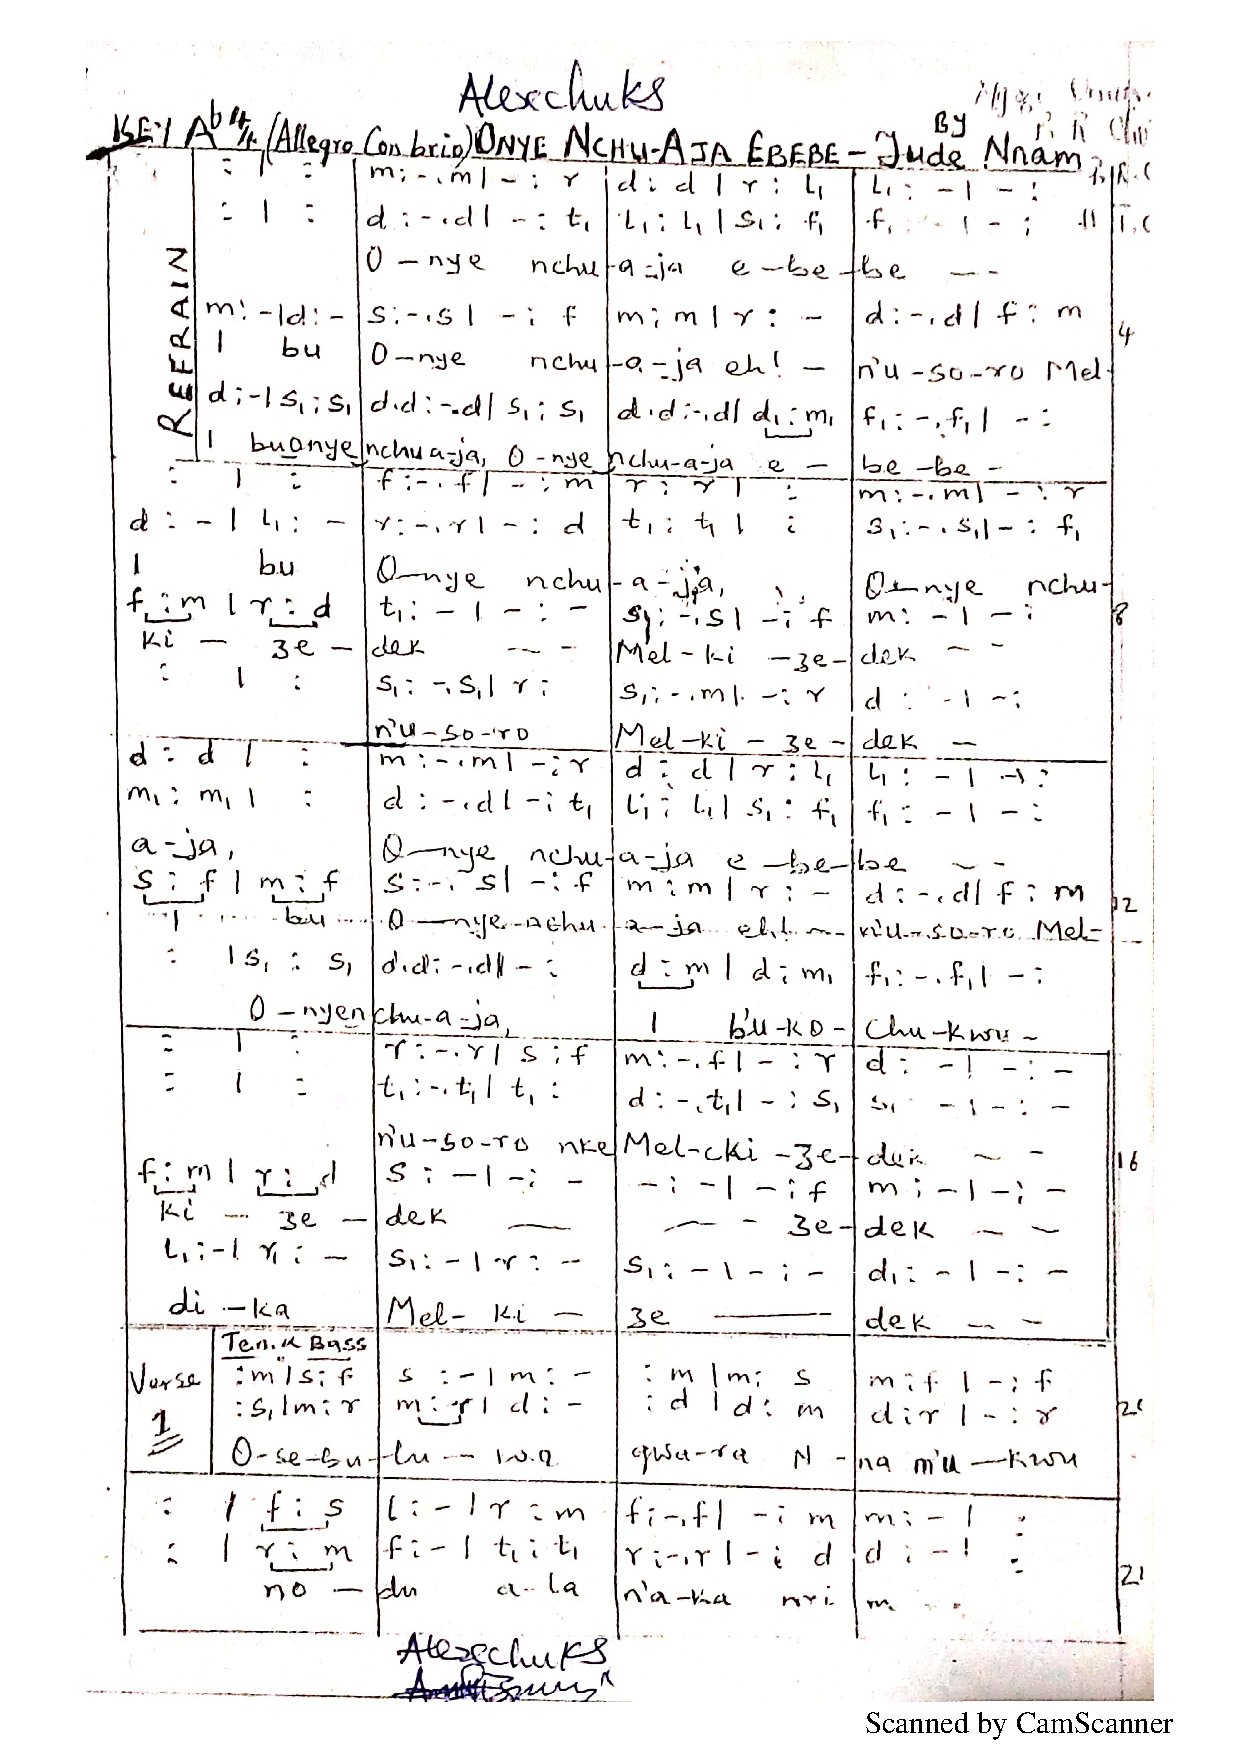 Alexchuks
KEY Ab 4/4 (Allegro Con brio) ONYE NCHU-AJA EBEBE - By Jude Nnam
REFRAIN
: | : m:-.m|-:r d:d|r:l₁ l₁:-|-:
: | : d:-.d|-:t₁ l₁:l₁|s₁:f₁ f₁:-|-:
O-nye nchu-a-ja e-be-be --
m:-|d:- s:-.s|-:f m:m|r:- d:-.d|f:m 4
I bu O-nye nchu-a-ja eh! - n'u-so-ro Mel-
d:-|s₁:s₁ d.d:-.d|s₁:s₁ d.d:-.d|d₁:m₁ f₁:-.f₁|-:
I buonye nchu a-ja, O-nye nchu-a-ja e- be-be-
: | : f:-.f|-:m r:r| : m:-.m|-:r
d:-|l₁:- r:-.r|-:d t₁:t₁| : s₁:-.s₁|-:f₁
I bu O-nye nchu-a-ja, O-nye nchu-
f:m|r:d t₁:-|-:- s:-.s|-:f m:-|-: 8
ki - ze - dek -- Mel-ki-ze-dek --
: | : s₁:-.s₁|r: s₁:-.m|-:r d:-|-:
n'u-so-ro Mel-ki-ze-dek -
d:d| : m:-.m|-:r d:d|r:l₁ l₁:-|-:
m₁:m₁| : d:-.d|-:t₁ l₁:l₁|s₁:f₁ f₁:-|-:
a-ja, O-nye nchu-a-ja e-be-be --
s:f|m:f s:-.s|-:f m:m|r:- d:-.d|f:m 12
I bu O-nye-nchu-a-ja eh! - n'u-so-ro Mel-
: |s₁:s₁ d.d:-.d|-: d:m|d:m₁ f₁:-.f₁|-:
O-nyenchu-a-ja, I b'u-ko-chu-kwu-
: | : r:-.r|s:f m:-.f|-:r d:-|-:-
: | : t₁:-.t₁|t₁: d:-.t₁|-:s₁ s₁:-|-:-
n'u-so-ro nke Mel-cki-ze-dek --
f:m|r:d s:-|-:- -:-|-:f m:-|-:- 16
ki - ze - dek - - - ze-dek --
l₁:-|r₁:- s₁:-|r:- s₁:-|-:- d₁:-|-:-
di-ka Mel-ki - ze - dek --
Ten. & Bass
Verse 1
:m|s:f s:-|m:- :m|m:s m:f|-:f
:s₁|m:r m:r|d:- :d|d:m d:r|-:r
O-se-bu-lu - wa gwa-ra N-na m'u-kwu
: |f:s l:-|r:m f:-.f|-:m m:-| :
: |r:m f:-|t₁:t₁ r:-.r|-:d d:-| :
no - du a-la n'a-ka nri m --
Alexchuks
Scanned by CamScanner